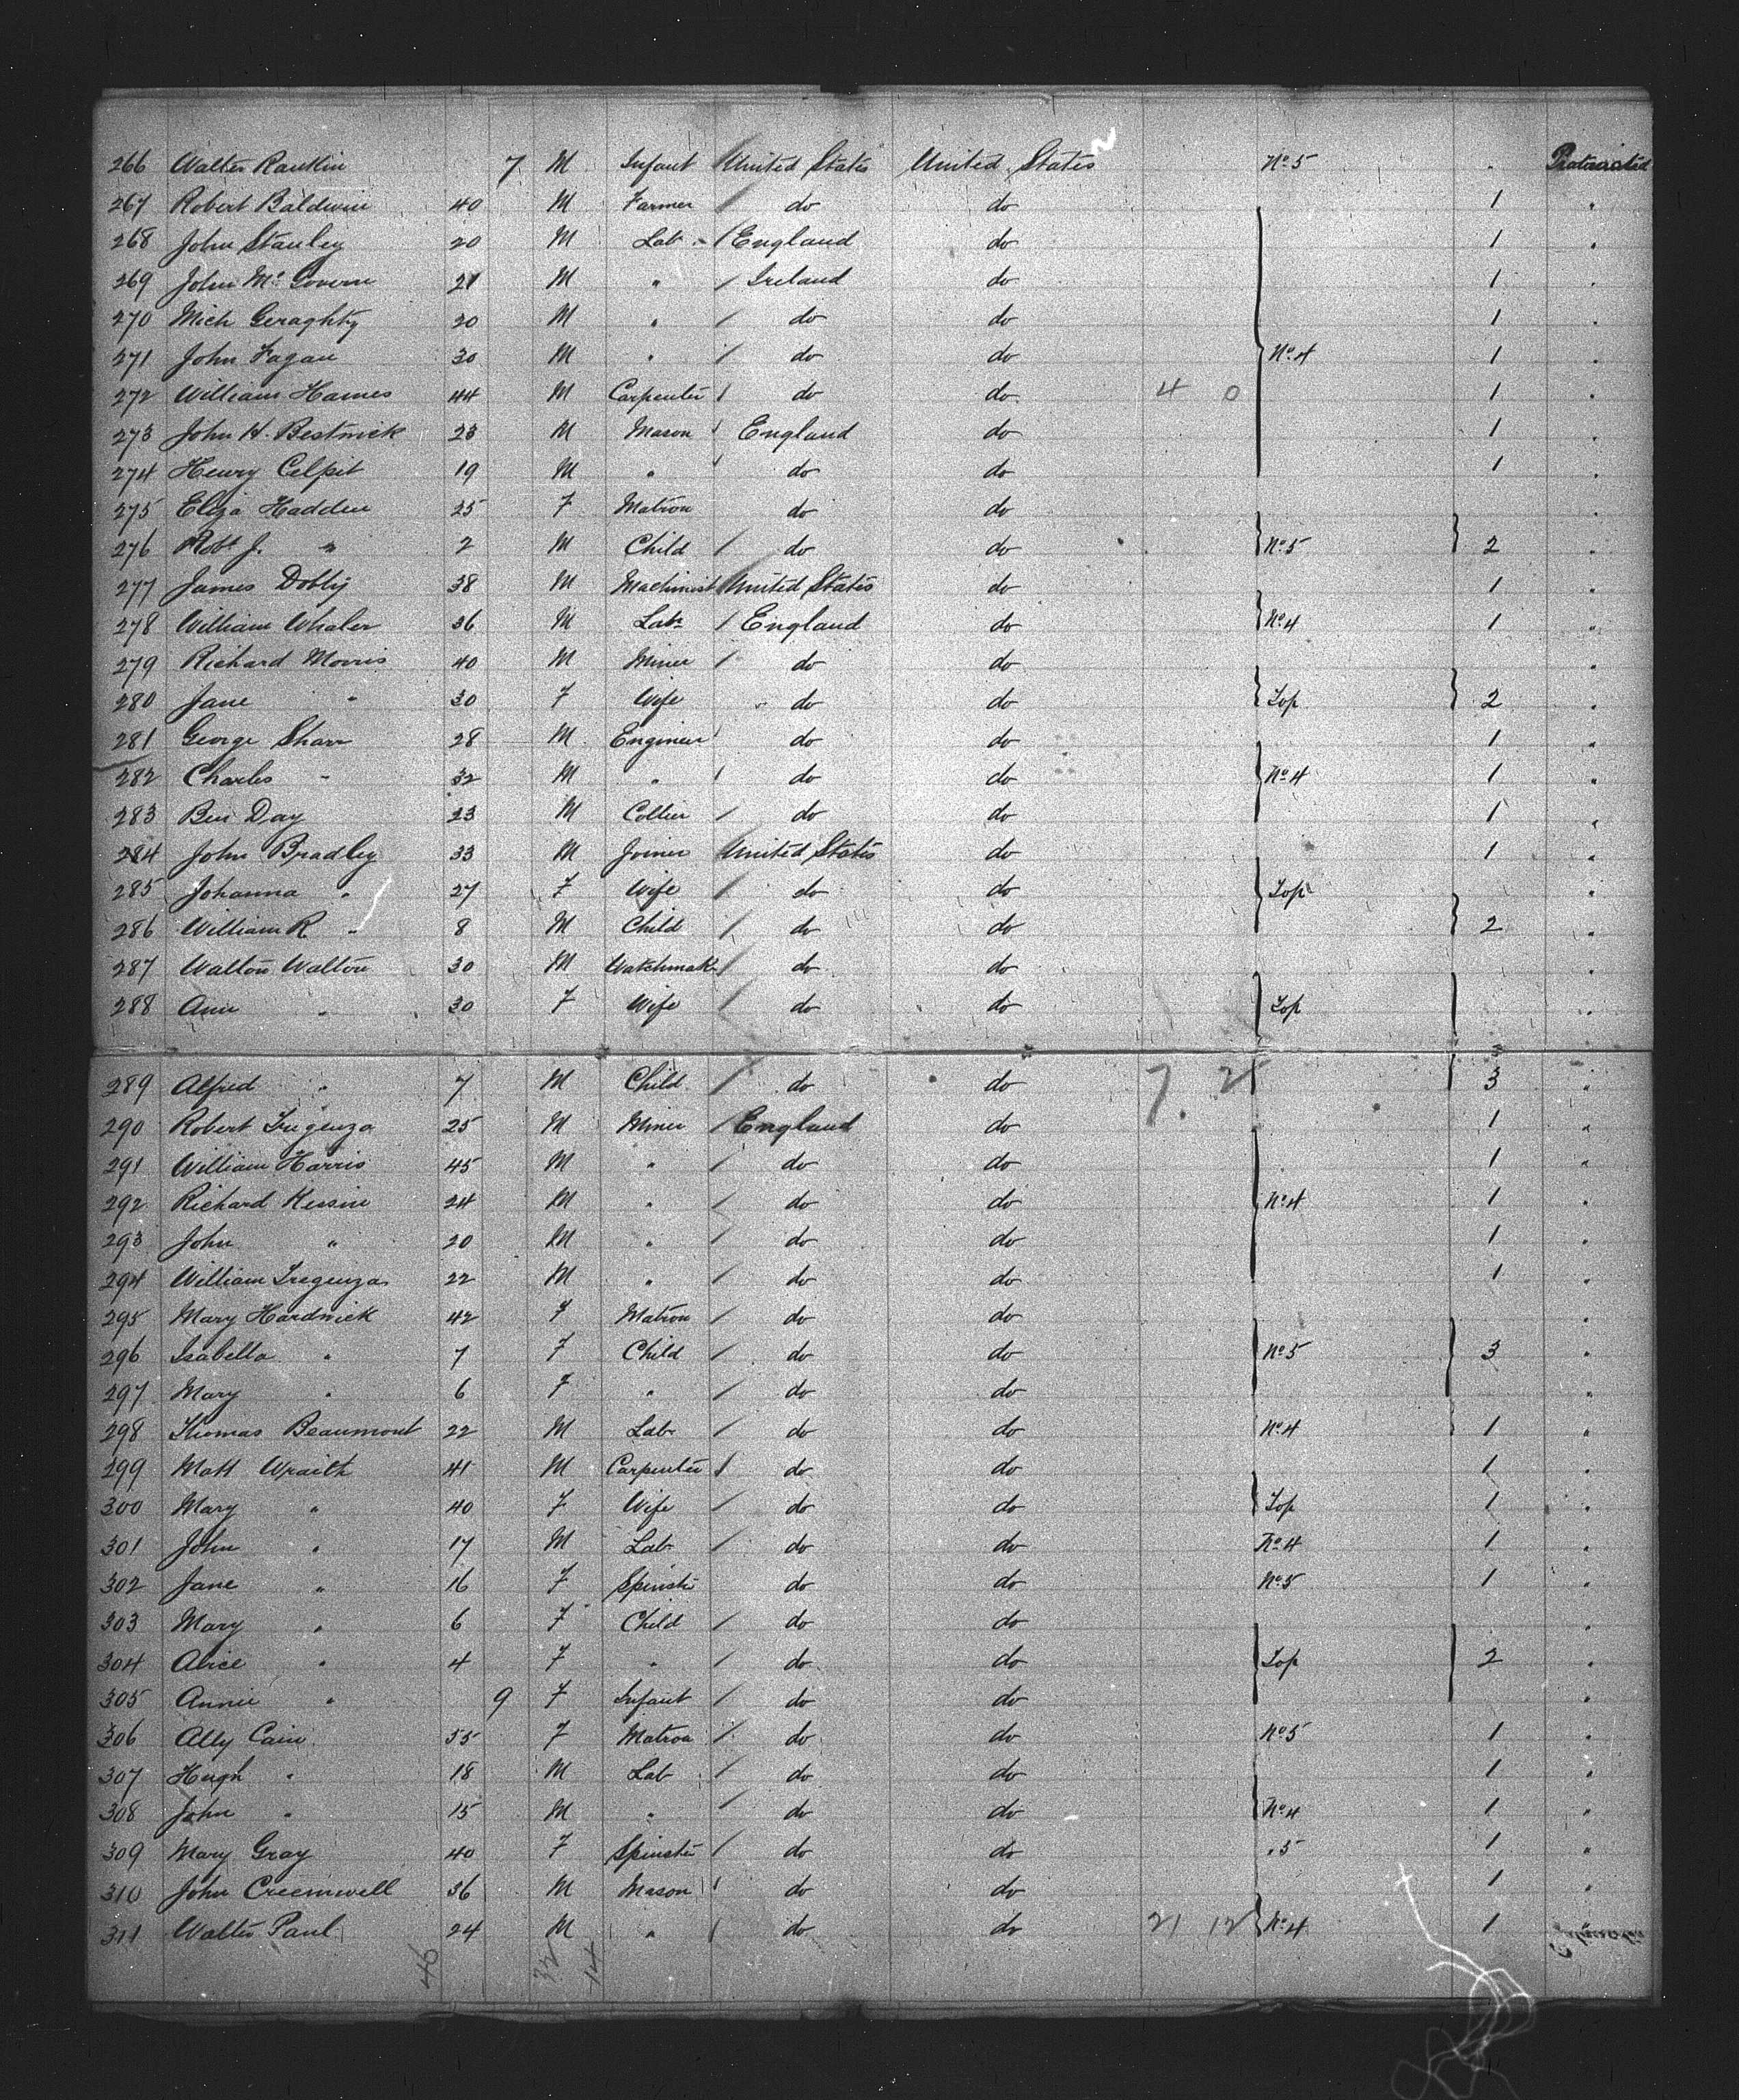 266 Walter Rankin 7 M Infant / United States United States No 5 Protracted
267 Robert Baldwin 40 M Farmer / do do 1 "
268 John Stanley 20 M Lab / England do 1 "
269 John McGovern 21 M " / Ireland do 1 "
270 Mich Geraghty 20 M " / do do 1 "
271 John Fagan 30 M " / do do No 4 1 "
272 William Hames 44 M Carpenter / do do 4 0 1 "
273 John H. Bestwick 23 M Mason / England do 1 "
274 Henry Celpit 19 M " / do do 1 "
275 Eliza Hadden 25 F Matron do do "
276 Robt J. " 2 M Child / do do No 5 2 "
277 James Dobby 38 M Machinist / United States do 1 "
278 William Whaler 36 M Labr / England do No 4 1 "
279 Richard Morris 40 M Miner / do do "
280 Jane " 30 F Wife " do do Top 2 "
281 George Sharr 28 M Engineer / do do 1 "
282 Charles " 32 M " / do do No 4 1 "
283 Ben Day 23 M Collier / do do 1 "
284 John Bradley 33 M Joiner / United States do 1 "
285 Johanna " 27 F Wife / do do Top "
286 William R " 8 M Child / do do 2 "
287 Walton Walton 30 M Watchmak / do do "
288 Ann " 30 F Wife / do do Top "
289 Alfred " 7 M Child / do do 7. 2 3 "
290 Robert Tregenza 25 M Miner / England do 1 "
291 William Harris 45 M " / do do 1 "
292 Richard Hessin 24 M " / do do No 4 1 "
293 John " 20 M " / do do 1 "
294 William Tregenza 22 M " / do do 1 "
295 Mary Hardwick 42 F Matron / do do "
296 Isabella " 7 F Child / do do No 5 3 "
297 Mary " 6 F " / do do "
298 Thomas Beaumont 22 M Labr / do do No 4 1 "
299 Matt Wraith 41 M Carpenter / do do 1 "
300 Mary " 40 F Wife / do do Top 1 "
301 John " 17 M Lab / do do No 4 1 "
302 Jane " 16 F Spinstr do do No 5 1 "
303 Mary " 6 F Child / do do "
304 Alice " 4 F " / do do Top 2 "
305 Annie " 9 F Infant / do do "
306 Ally Cain 55 F Matron / do do No 5 1 "
307 Hugh " 18 M Lab / do do 1 "
308 John " 15 M " / do do No 4 1 "
309 Mary Gray 40 F Spinstr / do do " 5 1 "
310 John Creemwell 36 M Mason / do do 1 "
311 Walter Paul 24 M " / do do 21 12 No 4 1
46 32 14